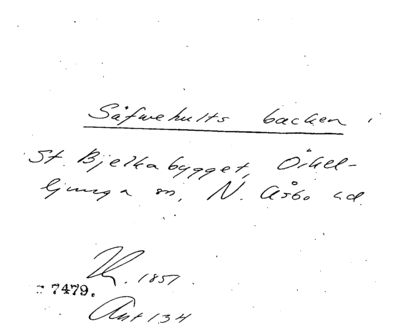 Såfwehults backen i
St. Bjelkabygget, Örkel-
ljunga sn, N. Åsbo hd.
1851.
7479.
Ant 134